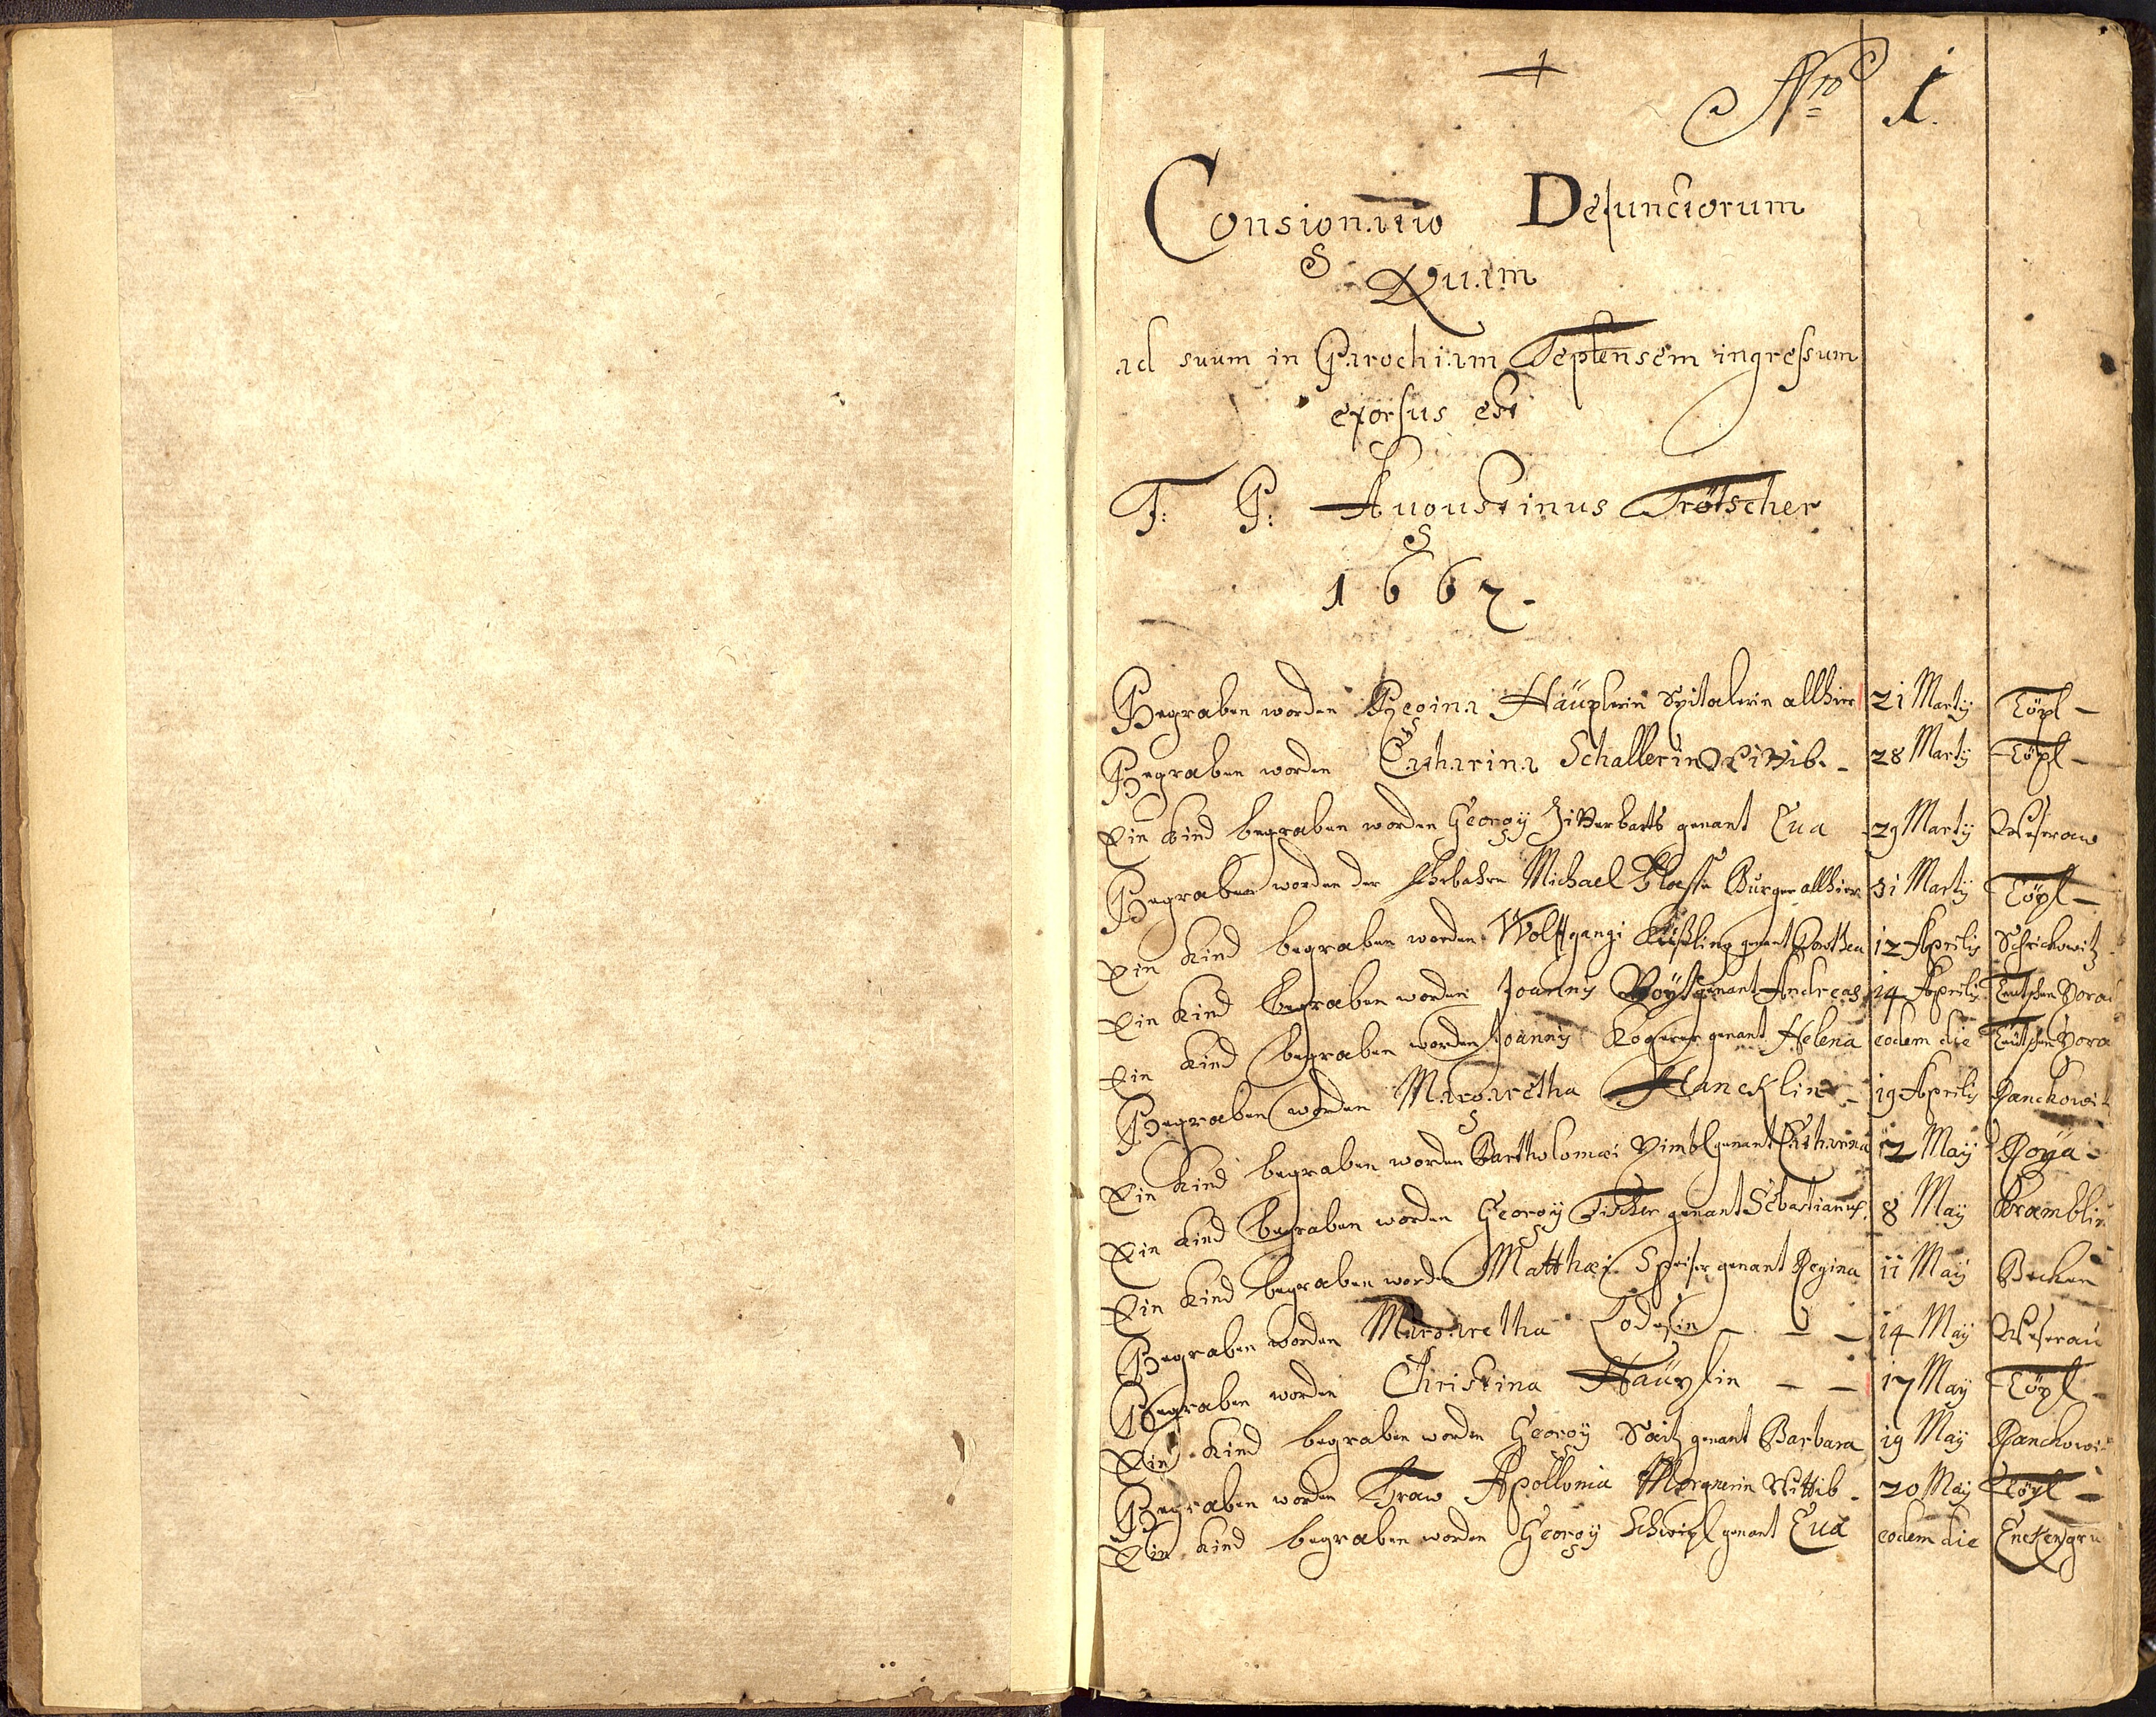 Nro 1.
Consignatio Defunctorum
Quam
ad suum in Parochiam Teplensem ingressum
exorsus est
F: P: Augustinus Trötscher
1667.
Begraben worden Regina Häuplerin Spitalerin allhier 21 Martij Töpl
Begraben worden Catharina Schallerin Wittib. 28 Martij Töpl
Ein Kind begraben worden Georgij Zitterbarts genant Eua 29 Martij Weserau
Begraben worden der Ehrbahre Michael Burger allhier 31 Martij Töpl
Ein Kind begraben worden Wolffgangi Küßling genant Dorothea 12 Aprilis Schrickowitz
Ein Kind begraben worden Joannis Voyt genant Andreas 14 Aprilis Teutschen Bora
Ein Kind begraben worden Joannis Kogerer genant Helena eodem die Teutschen Bora
Begraben worden Margaretha Hancklin 19 Aprilis Danckowit
Ein Kind begraben worden Bartholomæi genant Catharina 2 May Poÿa
Ein Kind begraben worden Georgij Fischer genant Sebastianus 8 May Kramblin
Ein Kind begraben worden Matthæi Speiser genant Regina 11 May Becken
Begraben worden Margaretha Lodesin 14 May Weserau
Begraben worden Christina Häuplin 17 May Töpl
Ein Kind begraben worden Georgij Saitz genant Barbara 19 May Danckowi
Begraben worden Fraw Apollonia Wittib 20 May Töpl
Ein Kind begraben worden Georgij genant Eua eodem die Enckengru